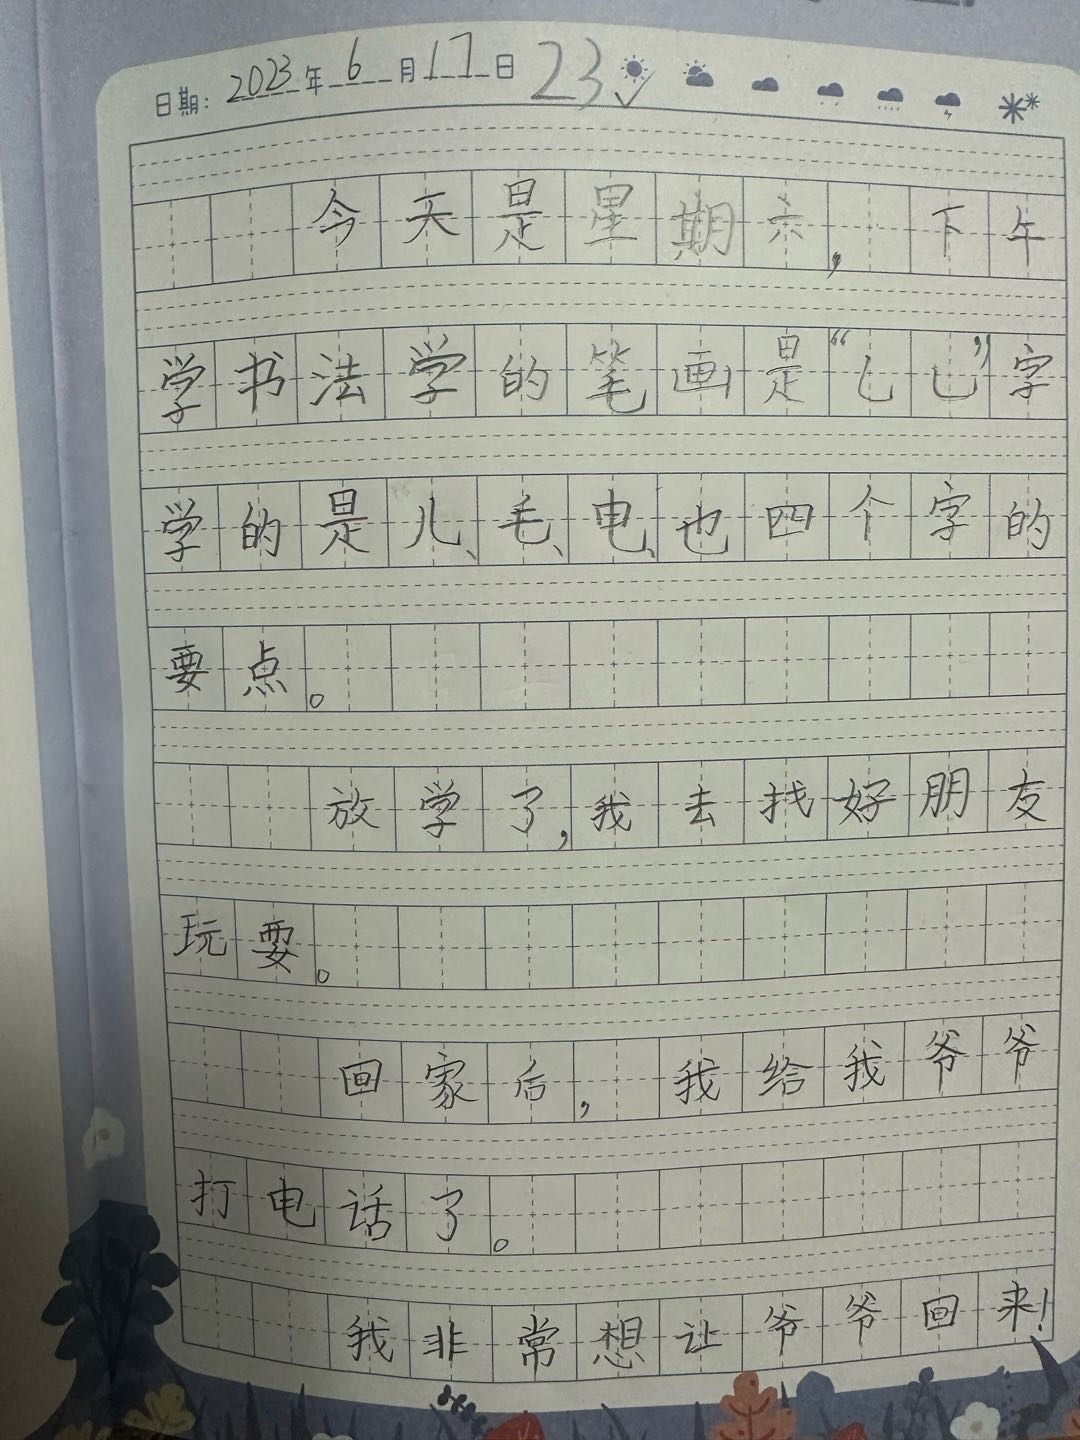 日期: 2023年6月17日 23
今天是星期六,下午
学书法学的笔画是“乚乚”字
学的是儿、毛、电、也四个字的
要点。
放学了,我去找好朋友
玩耍。
回家后,我给我爷爷
打电话了。
我非常想让爷爷回来!